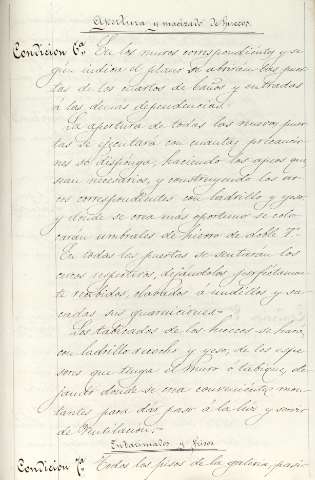 Apertura y macizado de huecos
Condicion 6ª En los muros correspondientes y se-
gún indica el plano se abrirán las puer-
tas de los cuartos de baños y entradas
á las demas dependencias.
La apertura de todas las nuevas puer-
tas se ejecutará con cuantas precaucio-
nes se disponga, haciendo los apeos que
sean necesarios, y construyendo los ar-
cos correspondientes con ladrillo y yeso,
y donde se crea más oportuno se colo-
carán umbrales de hierro de doble T.
En todas las puertas se sentarán los
cercos respectivos, dejándolos perfectamen-
te recibidos, clavados á nudillos y sa-
cadas sus guarniciones.
Los tabicados de los huecos se hará
con ladrillo recocho y yeso, de los espe-
sores que tenga el muro o tabique, de-
jando donde se crea conveniente, mon-
tantes para dar paso á la luz y servir
de ventilacion.
Entarimados y pisos
Condicion 7ª Todos los pisos de la galeria, pasi-